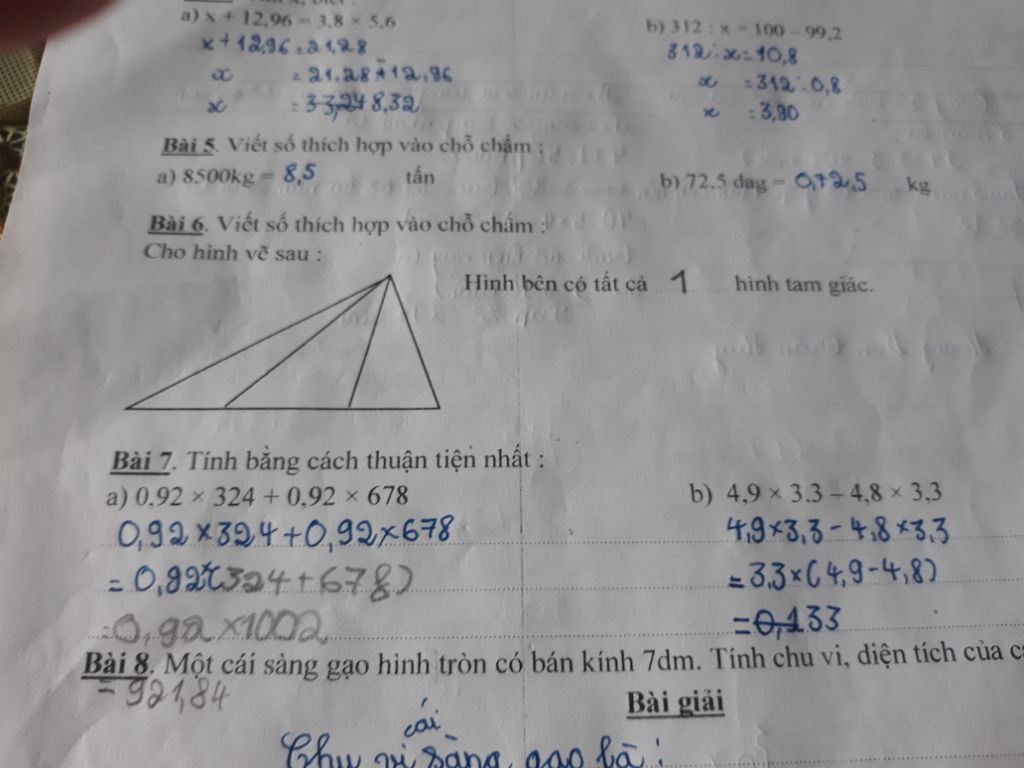 a) x + 12,96 = 3,8 × 5,6
x + 12,96 = 21,28
x = 21,28 - 12,96
x = 8,32
b) 312 : x = 100 – 99,2
312 : x = 0,8
x = 312 : 0,8
x = 3,90
Bài 5. Viết số thích hợp vào chỗ chấm :
a) 8500kg = 8,5 tấn
b) 72,5 dag = 0,725 kg
Bài 6. Viết số thích hợp vào chỗ chấm :
Cho hình vẽ sau :
Hình bên có tất cả 1 hình tam giác.
Bài 7. Tính bằng cách thuận tiện nhất :
a) 0,92 × 324 + 0,92 × 678
0,92 × 324 + 0,92 × 678
= 0,92 × (324 + 678)
= 0,92 × 1002
= 921,84
b) 4,9 × 3,3 – 4,8 × 3,3
4,9 × 3,3 – 4,8 × 3,3
= 3,3 × (4,9 – 4,8)
= 0,133
Bài 8. Một cái sàng gạo hình tròn có bán kính 7dm. Tính chu vi, diện tích của
Bài giải
Chu vi cái sàng gạo là :